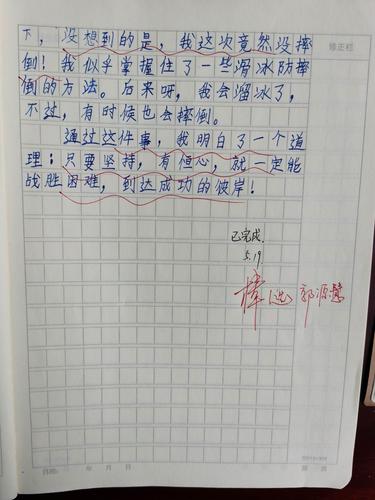 下，没想到的是，我这次竟然没摔
修正栏
倒！我似乎掌握住了一些滑冰防摔
倒的方法。后来呀，我会溜冰了，
不过，有时候也会摔倒。
通过这件事，我明白了一个道
理：只要坚持，有恒心，就一定能
战胜困难，到达成功的彼岸！
已完成.
5.19.
棒
郭源慧
日期： 年 月 日